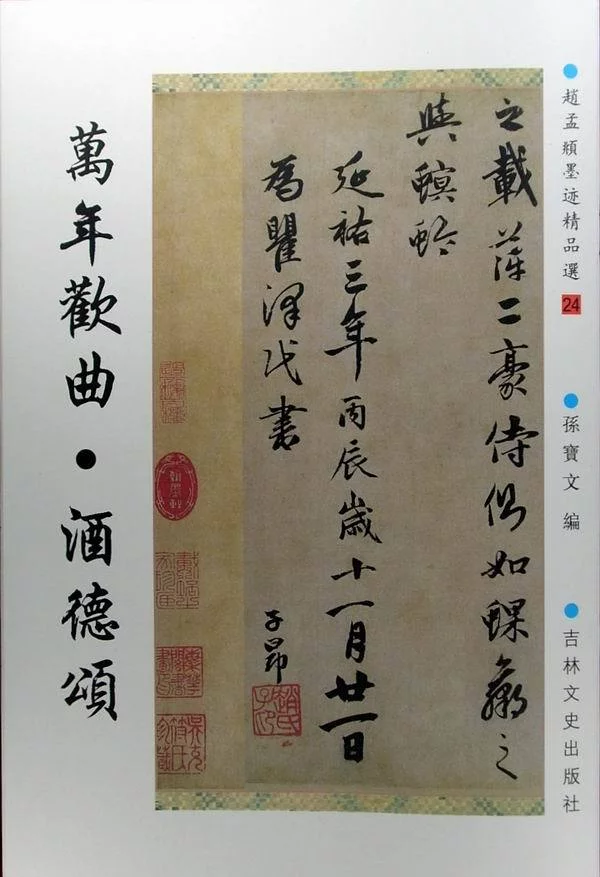 趙孟頫墨迹精品選 24
孫寶文 編
吉林文史出版社
之載萍二豪侍側如蜾蠃之
與螟蛉
延祐三年丙辰歲十一月廿一日
為瞿澤民書
子昂
趙氏子昂
萬年歡曲·酒德頌